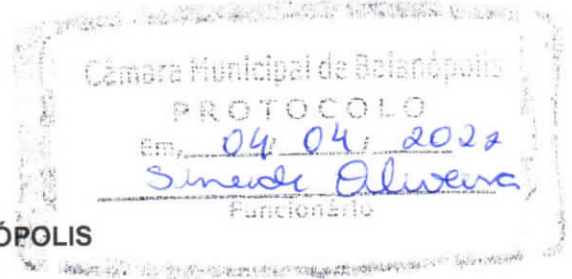 Câmara Municipal de Baianópolis
PROTOCOLO
Em, 04/ 04/ 2022
Oliveira
Funcionário
ÓPOLIS